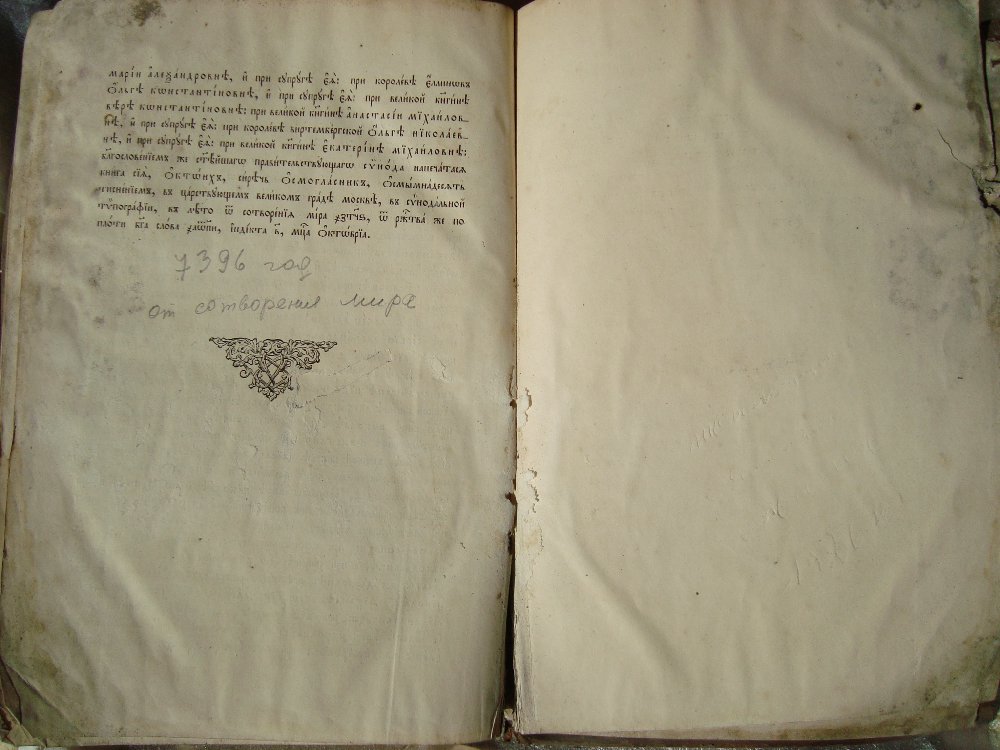 марі́и а҆леѯа́ндровнѣ, и҆ при сꙋпрꙋ́гѣ є҆ѧ̀: при короле́вѣ є҆́ллинѡвъ
ѻ҆́льгѣ кѡнстанті́новнѣ, и҆ при сꙋпрꙋ́гѣ є҆ѧ̀: при вели́кой кнѧги́нѣ
вѣ́рѣ кѡнстанті́новнѣ: при вели́кой кнѧги́нѣ а҆настасі́и мїха́йлов-
нѣ, и҆ при сꙋпрꙋ́гѣ є҆ѧ̀: при короле́вѣ виртемве́ргской ѻ҆́льгѣ нїкола́ев-
нѣ, и҆ при сꙋпрꙋ́гѣ є҆ѧ̀: при вели́кой кнѧги́нѣ є҆катері́нѣ мїха́йловнѣ:
благослове́нїемъ же ст҃ѣ́йшагѡ прави́тельствꙋющагѡ сѷно́да напеча́тасѧ
кни́га сїѧ̀, ѻ҆ктѡ́ихъ, си́рѣчь ѻ҆смогла́сникъ, ѻ҆смымна́десѧть
тисне́нїемъ, въ ца́рствꙋющемъ вели́комъ гра́дѣ москвѣ̀, въ сѷнода́льной
тѷпогра́фїи, въ лѣ́то ѿ сотворе́нїѧ мі́ра ҂зтч҃ѕ, ѿ рж҃тва̀ же по
пло́ти бг҃а сло́ва ҂аѿпи, і҆нді́кта а҃, мц҃а ѻ҆ктѡ́врїа.
7396 год
от сотворения мира